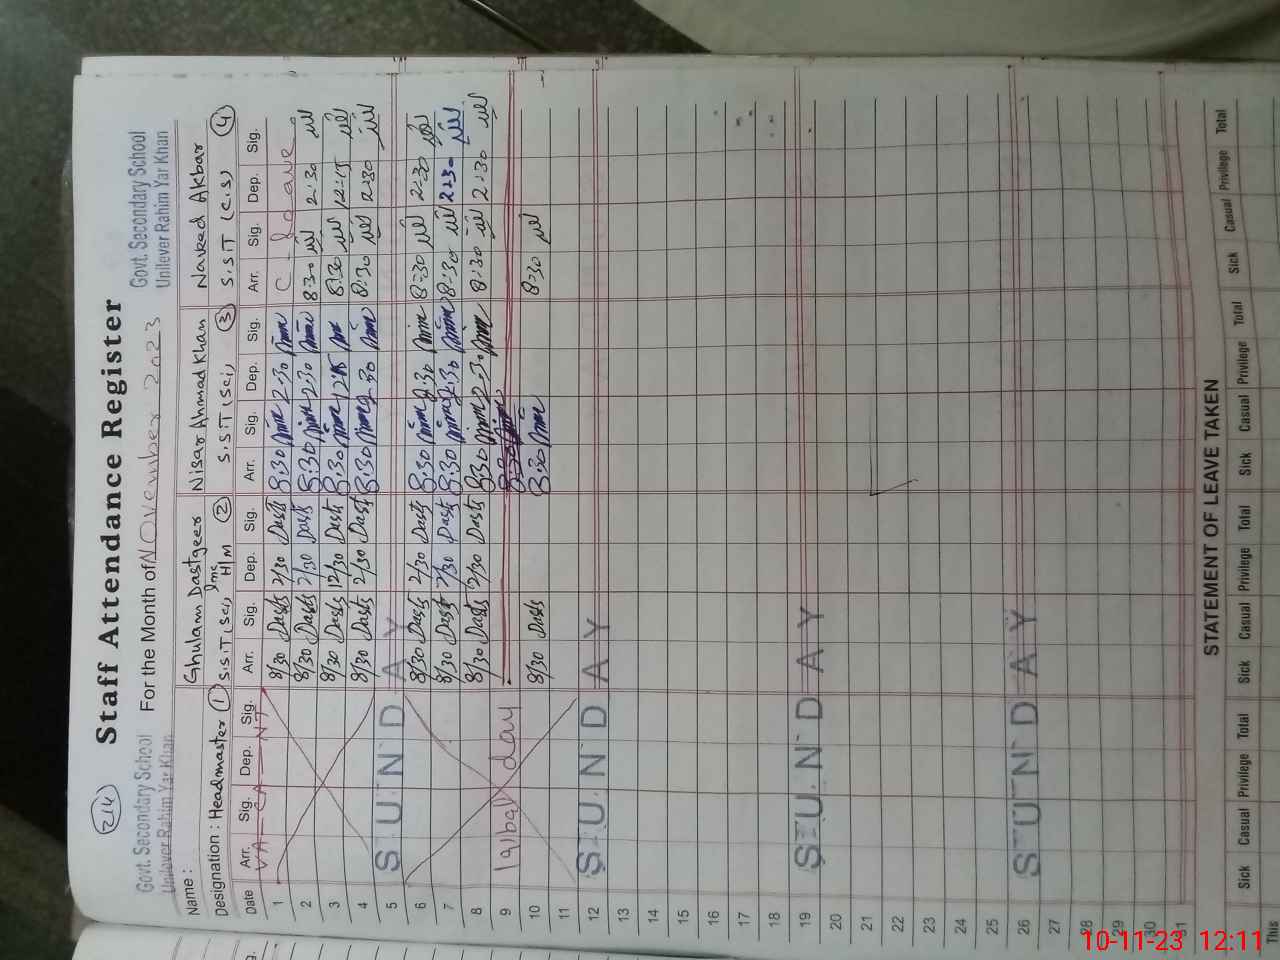 214
Staff Attendance Register
Govt. Secondary School
Unilever Rahim Yar Khan
For the Month of November 2023
Govt. Secondary School
Unilever Rahim Yar Khan
Name : Ghulam Dastgeer Nisar Ahmad Khan Naveed Akbar
Designation : Headmaster 1 S.S.T (Sci) Imc H/M 2 S.S.T (Sci) 3 S.S.T (C.S) 4
Date Arr. Sig. Dep. Sig. Arr. Sig. Dep. Sig. Arr. Sig. Dep. Sig. Arr. Sig. Dep. Sig.
VA-CA-NT
1 8/30 Dasts 2/30 Dasts 8:30 2:30 C-Leave
2 8/30 Dasts 2/30 Dasts 8:30 2:30 8:30 2:30
3 8/30 Dasts 12/30 Dasts 8:30 12:15 8:30 12:15
4 8/30 Dasts 2/30 Dasts 8:30 2:30 8:30 2:30
5 SUNDAY
6 8/30 Dasts 2/30 Dasts 8:30 2:30 8:30 2:30
7 8/30 Dasts 2/30 Dasts 8:30 2:30 8:30 2:30
8 8/30 Dasts 2/30 Dasts 8:30 2:30 8:30 2:30
9 Iqlbal day
10 8/30 Dasts 8:30 8:30
11
12 SUNDAY
13
14
15
16
17
18
19 SUNDAY
20
21
22
23
24
25
26 SUNDAY
27
28
29
30
31
STATEMENT OF LEAVE TAKEN
Sick Casual Privilege Total Sick Casual Privilege Total Sick Casual Privilege Total Sick Casual Privilege Total
This
10-11-23 12:11